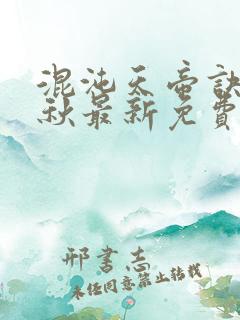 混沌天帝诀
秋最新免費
邢書志
未经同意禁止转载